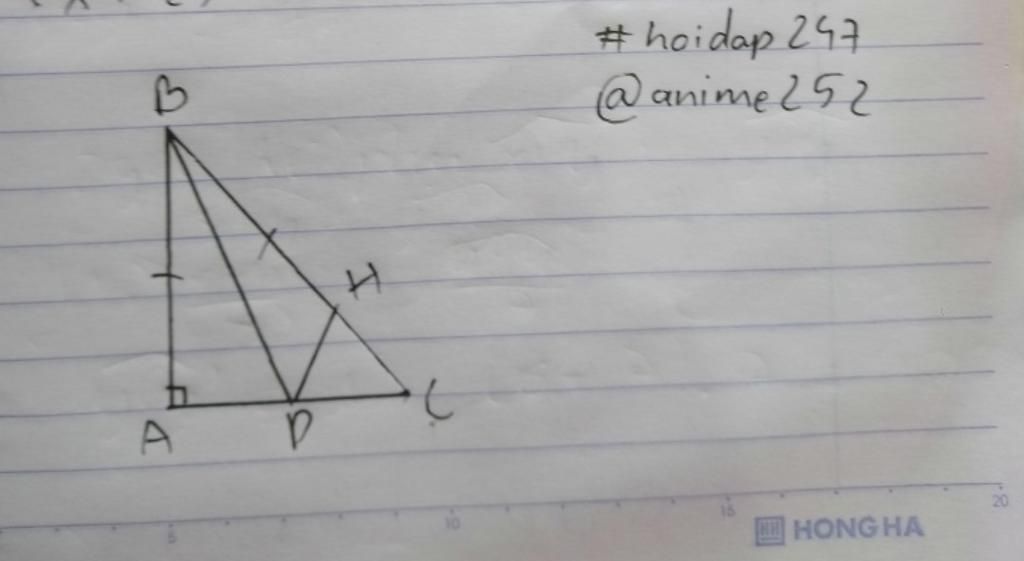 #hoidap247
@anime252
B
H
A
D
C
5
10
15
20
HH HONG HA